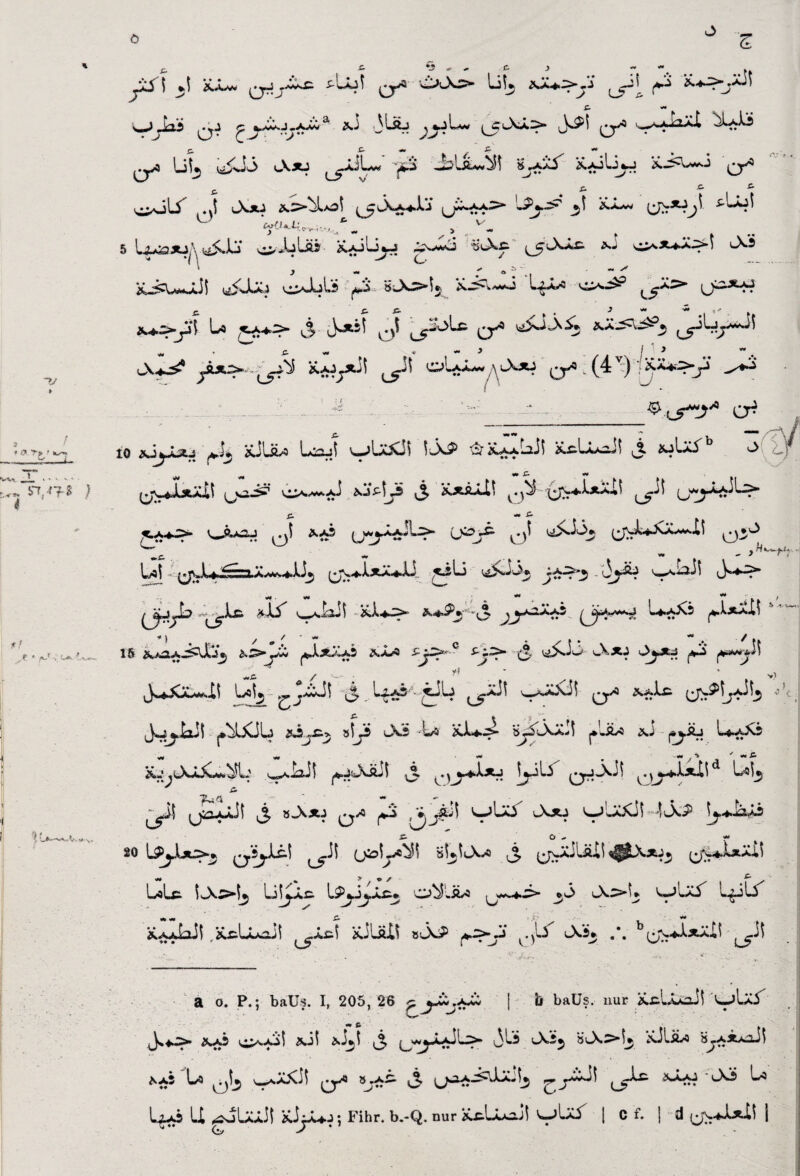 الترجمة ثم إني ترجمته وأنا حدث من أبناء عشرين سنة أو أكثر
قليلا لمتطبب من أهل جندي سابور يقال له شيريشوع a بن قطرب
من نسخة يونانية كثيرة الاسقاط ثم سألني بعد ذلك وأنا من
أبناء أربعين سنة أو نحوها حبيش تلميذي إصلاحه بعد أن كانت
5 قد اجتمعت له عندي عدة نسخ يونانية فقابلت تلك بعضها
ببعض حتى صحت منها نسخة واحدة ثم قابلت بتلك النسخة
السرياني وصححته وكذلك من عادتي أن أفعل في جميع ما أترجمه
ثم ترجمته (4v) من بعد سنيات إلى العربية لأبي جعفر محمد
بن موسى
10 b كتابه في الصناعة الطبية هذا الكتاب أيضا مقالة ولم يعنونه
جالينوس إلى المتعلمين لأن المنفعة في قراءته ليست تخص المتعلمين
دون المستكملين وذلك أن غرض جالينوس فيه أن يصف جميع
جمل الطب بقول وجيز وذلك نافع للمتعلمين وللمستكملين أما
المتعلم فكيما يسبق فيتصور في وهمه جملة الطب كله على طريق
15 الرسم ثم يعود بعد ذلك في جزء جزء c منه فيتعلم شرحه وتلخيصه
والبراهين عليه من الكتب التي بالغ فيها في الشرح وأما المستكمل
فكيما يقوم له مقام التذكرة لجملة ما قد قرأه وعرفه بالكلام الطويل
وأما d المعلمون الذين كانوا يعلمون في القديم الطب بالاسكندرية
فنظموا هذا الكتاب بعد كتاب الفرق ثم من بعده في النبض إلى
20 المتعلمين وبعده المقالتين في مداواة الأمراض إلى أغلوقن وجعلوها
كأنها كتاب واحد ذو خمس مقالات وعنونوها عنوانا واحدا عاما
إلى المتعلمين b .·. وقد كان ترجم هذه المقالة أعني الصناعة الطبية
a o. P.; baUṣ. I, 205, 26 شيريشوع | b baUṣ. nur كتاب الصناعة
الصغيرة مقالة واحدة وقد قال جالينوس في أوله أنه أثبت فيه جمل
ما قد بينه على الشرح والتلخيص في غيره من الكتب وأن ما فيه
بمنزلة النتائج لما فيها; Fihr. b.-Q. nur كتاب الصناعة | c f. | d المعلمين |